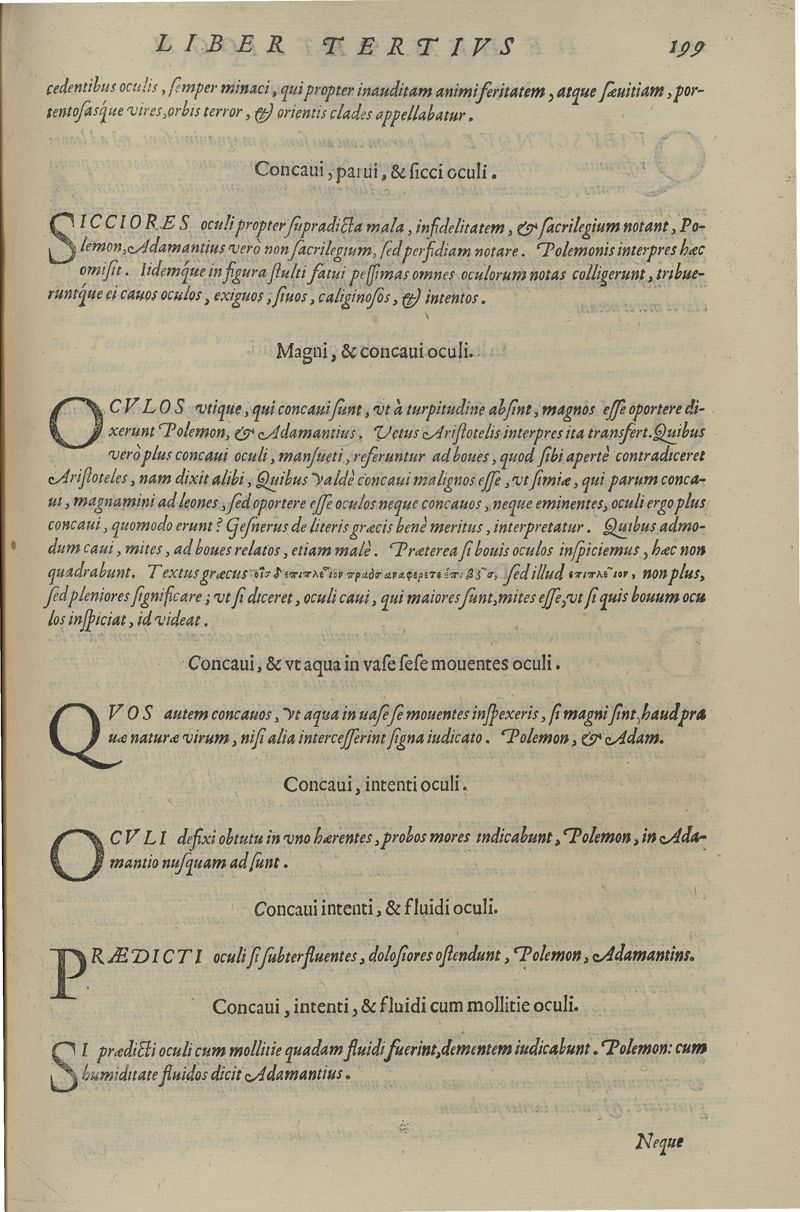 LIBER TERTIVS 199
cedentibus oculis, ſemper minaci, qui propter inauditam animi feritatem, atque ſæuitiam, por-
tentoſasq́ue vires, orbis terror, & orientis clades appellabatur.
Concaui, parui, & ſicci oculi.
SICCIORES oculi propter ſupradicta mala, infidelitatem, & ſacrilegium notant, Po-
lemon, Adamantius verò non ſacrilegium, ſed perfidiam notare. Polemonis interpres hæc
omiſit. Iidemq́ue in figura ſtulti fatui peſſimas omnes oculorum notas colligerunt, tribue-
runtq́ue ei cauos oculos, exiguos, ſiuos, caliginoſos, & intentos.
Magni, & concaui oculi.
OCVLOS vtique, qui concaui ſunt, vt à turpitudine abſint, magnos eſſe oportere di-
xerunt Polemon, & Adamantius. Vetus Ariſtotelis interpres ita transfert. Quibus
verò plus concaui oculi, manſueti, referuntur ad boues, quod ſibi apertè contradiceret
Ariſtoteles, nam dixit alibi, Quibus valdè concaui malignos eſſe, vt ſimiæ, qui parum conca-
ui, magnamini ad leones, ſed oportere eſſe oculos neque concauos, neque eminentes, oculi ergo plus
concaui, quomodo erunt? Geſnerus de literis græcis benè meritus, interpretatur. Quibus admo-
dum caui, mites, ad boues relatos, etiam malè. Præterea ſi bouis oculos inſpiciemus, hæc non
quadrabunt. Textus græcus ſed illud non plus,
ſed pleniores ſignificare; vt ſi diceret, oculi caui, qui maiores ſunt, mites eſſe, vt ſi quis bouum ocu
los inſpiciat, id videat.
Concaui, & vt aqua in vaſe ſeſe mouentes oculi.
QVOS autem concauos, vt aqua in uaſe ſe mouentes inſpexeris, ſi magni ſint, haud pra
uæ naturæ virum, niſi alia interceſſerint ſigna iudicato. Polemon, & Adam.
Concaui, intenti oculi.
OCVLI defixi obtutu in vno hærentes, probos mores indicabunt, Polemon, in Ada-
mantio nuſquam adſunt.
Concaui intenti, & fluidi oculi.
PRÆDICTI oculi ſi ſubterfluentes, doloſiores oſtendunt, Polemon, Adamantins.
Concaui, intenti, & fluidi cum mollitie oculi.
SI prædicti oculi cum mollitie quadam fluidi fuerint, dementem iudicabunt. Polemon: cum
humiditate fluidos dicit Adamantius.
Neque